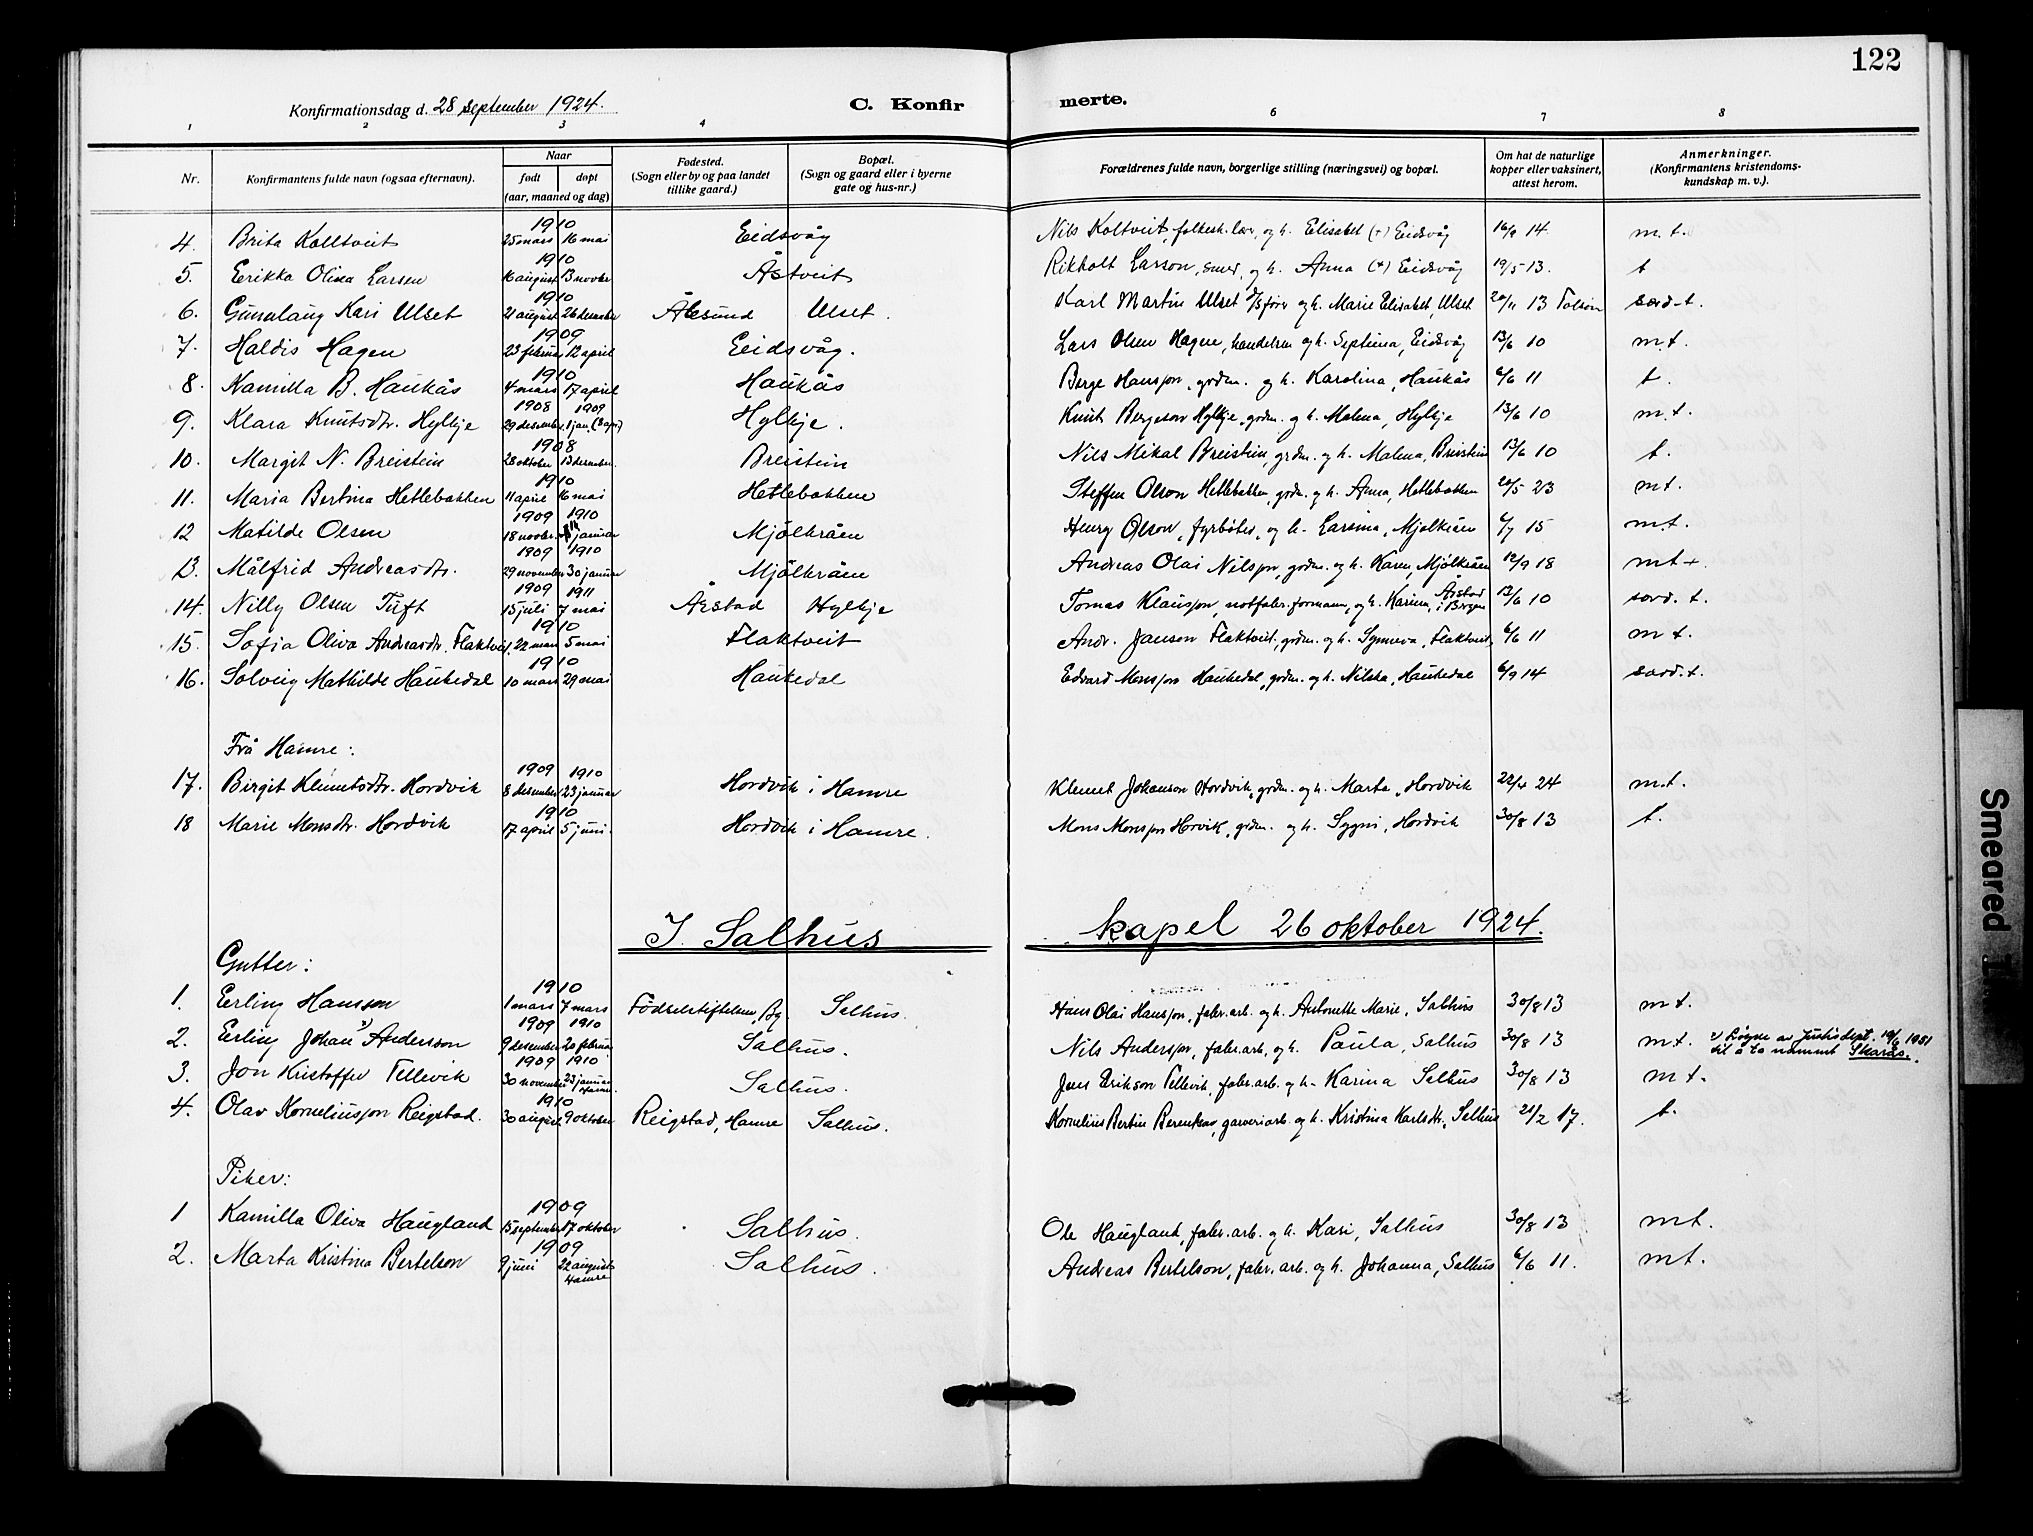 122
Konfirmationsdag d. 28 september 1924.
C. Konfirmerte.
1 2 3 4 6 7 8
Nr. Konfirmantens fulde navn (ogsaa efternavn). Naar født døpt (aar, maaned og dag) Fødested. (Sogn eller by og paa landet tillike gaard.) Bopæl. (Sogn og gaard eller i byerne gate og hus-nr.) Forældrenes fulde navn, borgerlige stilling (næringsvei) og bopæl. Om hat de naturlige kopper eller vaksinert, attest herom. Anmerkninger. (Konfirmantens kristendomskundskap m. v.).
4. Brita Kolltveit 1910 25 mars 16 mai Eidsvåg Nils Koltveit, folkesk.lær, og h. Elisabet (+) Eidsvåg 14 m.t.
5. Erikka Olina Larsen 1910 16 august 13 novbr Åstveit Rikholt Larson, smed, og h. Anna (+) Eidsvåg 19/5 13. t
6. Gunnlaug Kari Ulset 1910 21 august 26 desember Ålesund Ulset. Karl Martin Ulset, og h. Marie Elisabet, Ulset 20/11 13 særd. t.
7. Haldis Hagen 1909 23 februar 12 april Eidsvåg. Lars Olsen Hagen, handelsm og h. Septima, Eidsvåg 13/6 10 m.t.
8. Kamilla B. Haukås 1910 4 mars 17 april Haukås Berge Hansson, grdm. og h. Karolina, Haukås 6/6 11 t.
9. Klara Knutsdtr. Hylkje 1908 1909 29 desember 1 jan. Hylkje. Knut Bergeson Hylkje, grdm. og h. Malena, Hylkje 13/6 10 m.t.
10. Margit N. Breistein 1908 28 oktober 13 desember. Breistein Nils Mikal Breistein, grdm. og h. Malena, Breistein 13/6 10 t.
11. Maria Bertina Hetlebakken 1910 11 april 16 mai Hetlebakken Steffen Olson Hetlebakken, grdm. og h. Anna, Hetlebakken 20/5 23 m t.
12 Matilde Olsen 1909 1910 18 novbr. januar Mjölkråen Henry Olson, fyrböter, og h. Larsina, Mjølkråen 6/7 15 m.t.
13. Målfrid Andreasdtr. 1909 1910 29 november 30 januar Mjölkråen Andreas Olai Nilsson, grdm. og h. Karen, Mjølkråen 12/9 18 mt+.
14. Nilly Olsen Tuft 1909 1911 15 juli 7 mai Årstad Hylkje Tomas Klausson, notfabr. formann, og h. Karina, Årstad i Bergen 13/6 10 særd. t.
15. Sofia Oliva Andreasdtr. Flaktveit. 1910 22 mars 5 mai Flaktveit Andr. Janson Flaktveit, grdm. og h. Synneva, Flaktveit, 6/6 11 m t.
16. Solveig Mathilde Haukedal 1910 10 mars 29 mai Haukedal Edvard Monsson Haukedal, grdm. og h. Nilska, Haukedal 6/9 14 særd. t.
Frå Hamre:
17. Birgit Klemetsdtr. Hordvik 1909 1910 8 desember 23 januar Hordvik i Hamre Klemet Johanson Hordvik, grdm. og h. Marta, Hordvik 22/4 24 m.t.
18 Marie Monsdtr. Hordvik 1910 17 april 5 juni. Hordvik i Hamre. Mons Monsson Horvik, grdm. og h. Sygni, Hordvik 30/8 13 t.
I Salhus kapel 26 oktober 1924.
Gutter:
1. Erling Hansson 1910 1 mars 7 mars Födselstiftelsen, Bg. Salhus. Hans Olai Hansson, fabr. arb. og h. Antonette Marie, Salhus 30/8 13 m t.
2. Erling Johan Anderson 1909 1910 9 desember 20 februar Salhus. Nils Andersson, fabr. arb, og h. Paula, Salhus 30/8 13 m t. Løyve av Justisdept. 1951 til å ta namnet Skarås.
3. Jon Kristoffer Tellevik 1909 1910 30 november 23 januar Hamre. Salhus. Jens Erikson Tellevik, fabr. arb. og h. Karina Salhus 30/8 13 m t.
4. Olav Korneliusson Reigstad. 1910 30 august 9 oktober Reigstad, Hamre Salhus. Kornelius Bertin Berentsen, garveriarb. og h. Kristina Karlsdtr., Salhus 21/2 17. t.
Piker:
1 Kamilla Oliva Haugland 1909 15 september 17 oktober Salhus. Ole Haugland, fabr. arb. og h. Kari, Salhus 30/8 13 mt.
2. Marta Kristina Bertelson 1909 9 juni 22 august Hamre Salhus. Andreas Bertelson, fabr. arb. og h. Johanna, Salhus 6/6 11. m t.
Smeared